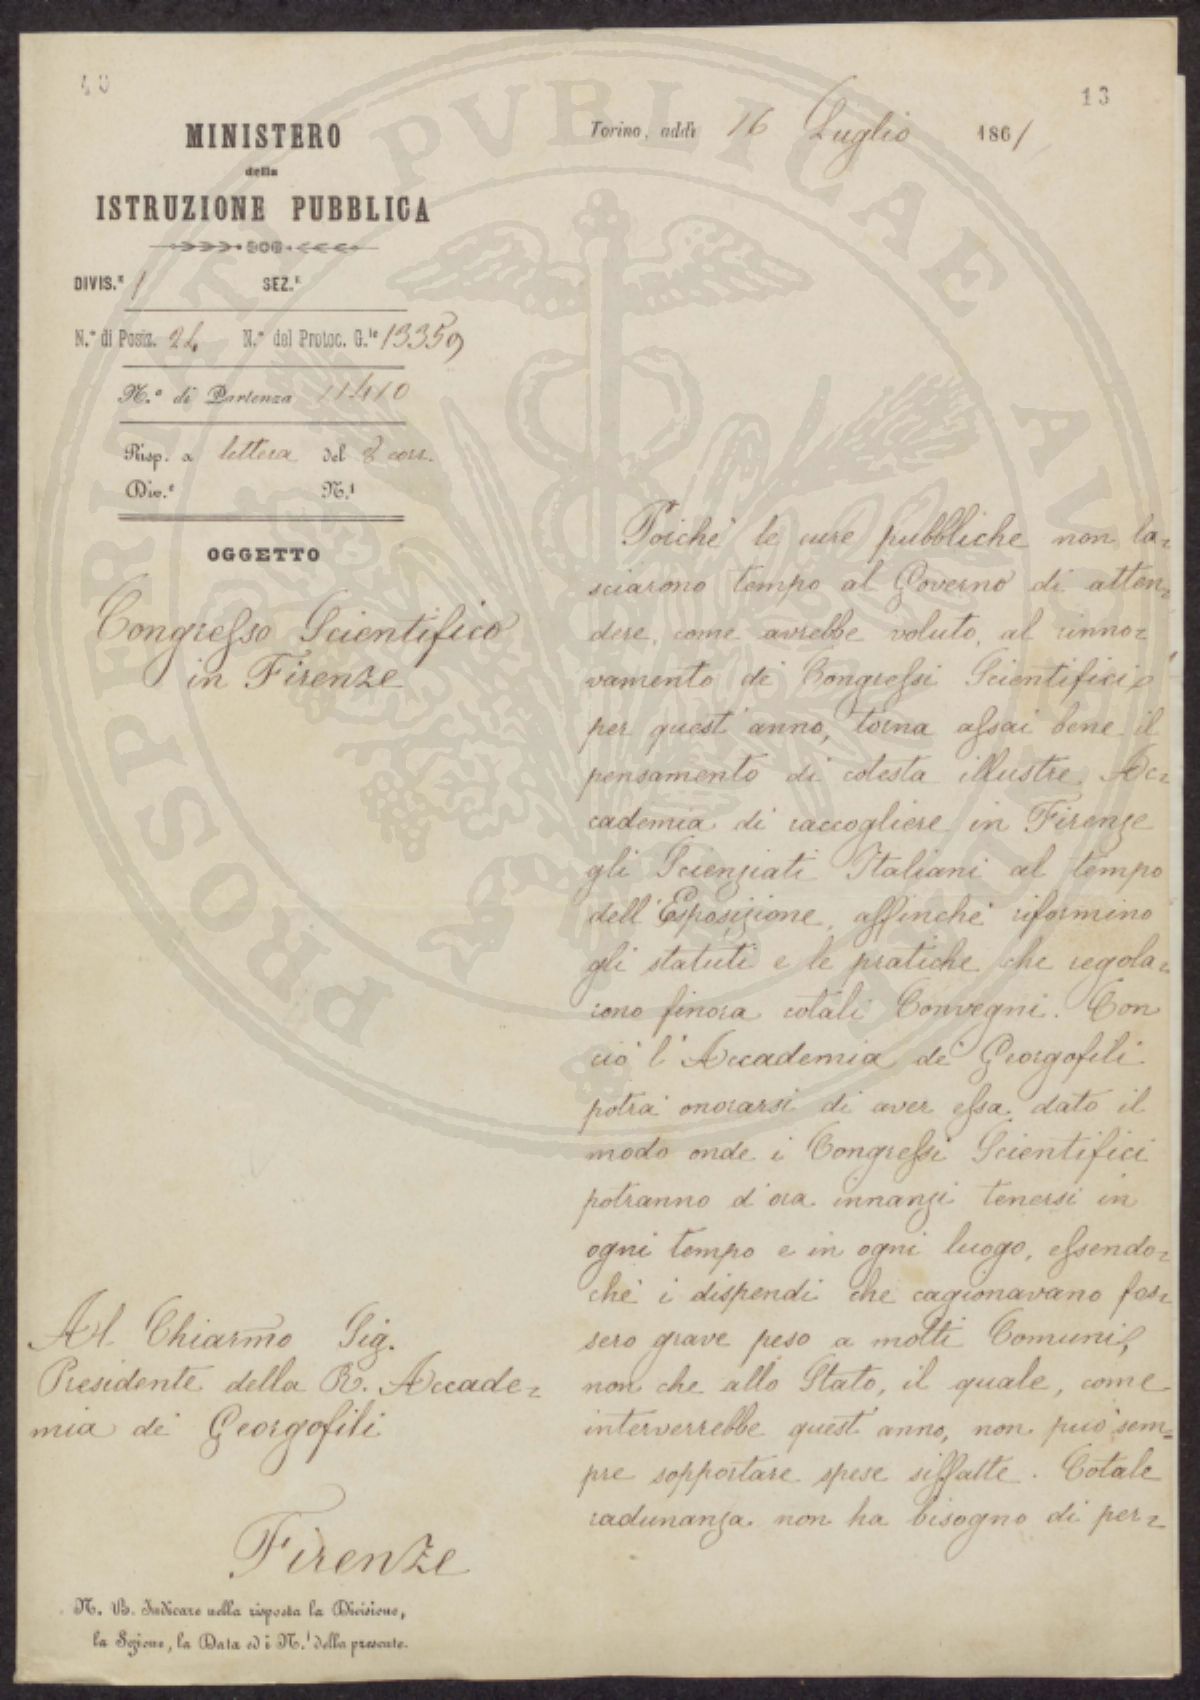 40
13
MINISTERO
della
ISTRUZIONE PUBBLICA
Torino, addì 16 Luglio 1861
DIVIS.e 1 SEZ.e
N.o di Posiz. 24 N.o del Protoc. G.le 13359
N.o di Partenza 11410
Risp. a lettera del 8 corr.
Div.e N.i
OGGETTO
Congresso Scientifico
in Firenze
Poiché le cure pubbliche non la=
sciarono tempo al Governo di atten=
dere, come avrebbe voluto, al rinno=
vamento de' Congressi Scientifici
per quest'anno, torna assai bene il
pensamento di cotesta illustre Ac=
cademia di raccogliere in Firenze
gli Scienziati Italiani al tempo
dell'Esposizione, affinché riformino
gli statuti e le pratiche che regola=
rono finora cotali Convegni. Con
ciò l'Accademia de' Georgofili
potrà onorarsi di aver essa dato il
modo onde i Congressi Scientifici
potranno d'ora innanzi tenersi in
ogni tempo e in ogni luogo, essendo=
ché i dispendi che cagionavano fos=
sero grave peso a molti Comuni,
non che allo Stato, il quale, come
interverrebbe quest'anno, non può sem=
pre sopportare spese siffatte. Cotale
radunanza non ha bisogno di per=
Al Chiarmo Sig.
Presidente della R. Accade=
mia de' Georgofili
Firenze
N. B. Indicare nella risposta la Divisione,
la Sezione, la Data ed i N.i della presente.
PROSPERITATI PUBLICAE AU